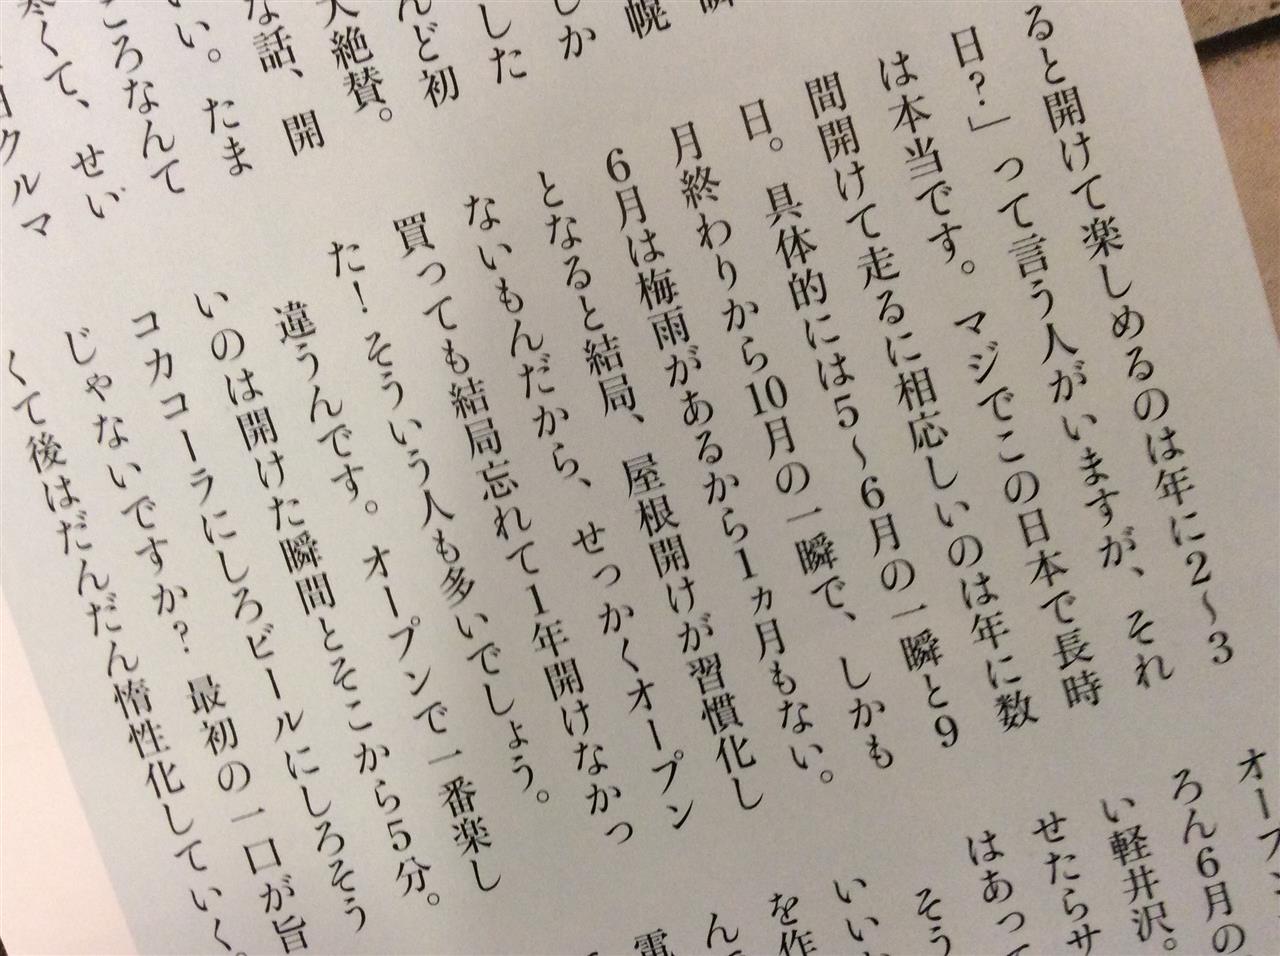 幌
しか
した
んど初
大絶賛。
な話、開
い。たま
ころなんて
寒くて、せい
クルマ
ると開けて楽しめるのは年に2〜3
日?」って言う人がいますが、それ
は本当です。マジでこの日本で長時
間開けて走るに相応しいのは年に数
日。具体的には5〜6月の一瞬と9
月終わりから10月の一瞬で、しかも
6月は梅雨があるから1ヵ月もない。
となると結局、屋根開けが習慣化し
ないもんだから、せっかくオープン
買っても結局忘れて1年開けなかっ
た!そういう人も多いでしょう。
違うんです。オープンで一番楽し
いのは開けた瞬間とそこから5分。
コカコーラにしろビールにしろそう
じゃないですか?最初の一口が旨
くて後はだんだん惰性化していく。
オープ
ろん6月の
い軽井沢。
せたらサ
はあって
そう
いい
を作
ん
電